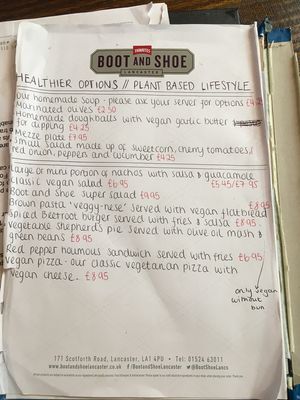 THWAITES
BOOT AND SHOE
LANCASTER
HEALTHIER OPTIONS // PLANT BASED LIFESTYLE
Our homemade soup - please ask your server for options £4.25
Marinated olives £2.50
Homemade doughballs with vegan garlic butter
for dipping £4.25
Mezze plate £7.95
Small salad made up of sweetcorn, cherry tomatoes,
red onion, peppers and cucumber £4.25
Large or mini portion of nachos with salsa & guacamole
£5.45/£7.95
Classic vegan salad £6.95
Boot and Shoe super salad £9.95
Brown pasta 'veggy-nese' served with vegan flatbread £8.95
Spiced Beetroot burger served with fries & salsa £8.95
Vegetable shepherd's pie served with olive oil mush &
green beans £8.95
Red pepper houmous sandwich served with fries £6.95
Vegan pizza - our classic vegetarian pizza with
vegan cheese. £8.95
only vegan
without
bun
171 Scotforth Road, Lancaster, LA1 4PU • Tel: 01524 63011
www.bootandshoelancaster.co.uk /bootandshoelancaster @BootShoeLancs